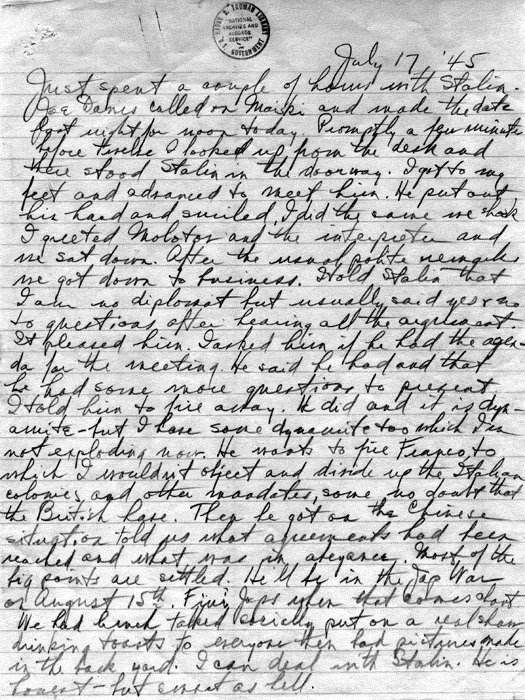 HARRY S. TRUMAN LIBRARY
"NATIONAL
ARCHIVES AND
RECORDS
SERVICE"
U.S. GOVERNMENT
July 17, '45
Just spent a couple of hours with Stalin.
Joe Davies called on Maiski and made the date
last night for noon today. Promptly a few minutes
before twelve I looked up from the desk and
there stood Stalin in the doorway. I got to my
feet and advanced to meet him. He put out
his hand and smiled. I did the same we shook
I greeted Molotov and the interpreter and
we sat down. After the usual polite remarks
we got down to business. I told Stalin that
I am no diplomat but usually said yes & no
to questions after hearing all the argument.
It pleased him. I asked him if he had the agen-
da for the meeting. He said he had and that
he had some more questions to present
I told him to fire away. He did and it is dyn-
amite - but I have some dynamite too which I'm
not exploding now. He wants to fire Franco, to
which I wouldn't object and divide up the Italian
colonies and other mandates, some no doubt that
the British have. Then he got on the Chinese
situation told us what agreements had been
reached and what was in abeyance. Most of the
big points are settled. He'll be in the Jap War
on August 15th. Fini Japs when that comes about
We had lunch talked socially put on a real show
drinking toasts to everyone then had pictures made
in the back yard. I can deal with Stalin. He is
honest - but smart as hell.